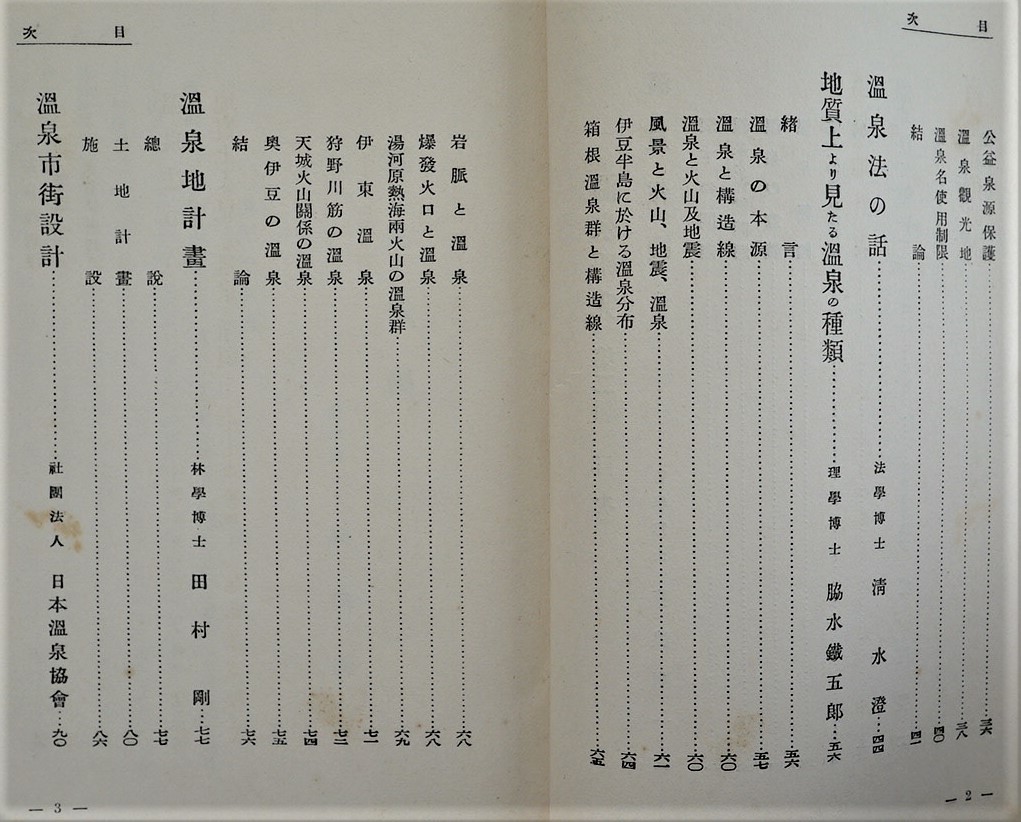 目次
公益泉源保護 三六
溫泉觀光地 三八
溫泉名使用制限 四〇
結論 四一
溫泉法の話 法學博士 淸水澄 四四
地質上より見たる溫泉の種類 理學博士 脇水鐵五郎 五六
緖言 五六
溫泉の本源 五七
溫泉と構造線 六〇
溫泉と火山及地震 六〇
風景と火山、地震、溫泉 六一
伊豆半島に於ける溫泉分布 六四
箱根溫泉群と構造線 六五
— 2 —
目次
岩脈と溫泉 六八
爆發火口と溫泉 六八
湯河原熱海兩火山の溫泉群 六九
伊東溫泉 七一
狩野川筋の溫泉 七二
天城火山關係の溫泉 七四
奧伊豆の溫泉 七五
結論 七六
溫泉地計畫 林學博士 田村剛 七七
總說 七七
土地計畫 八〇
施設 八六
溫泉市街設計 社團法人 日本溫泉協會 九〇
— 3 —